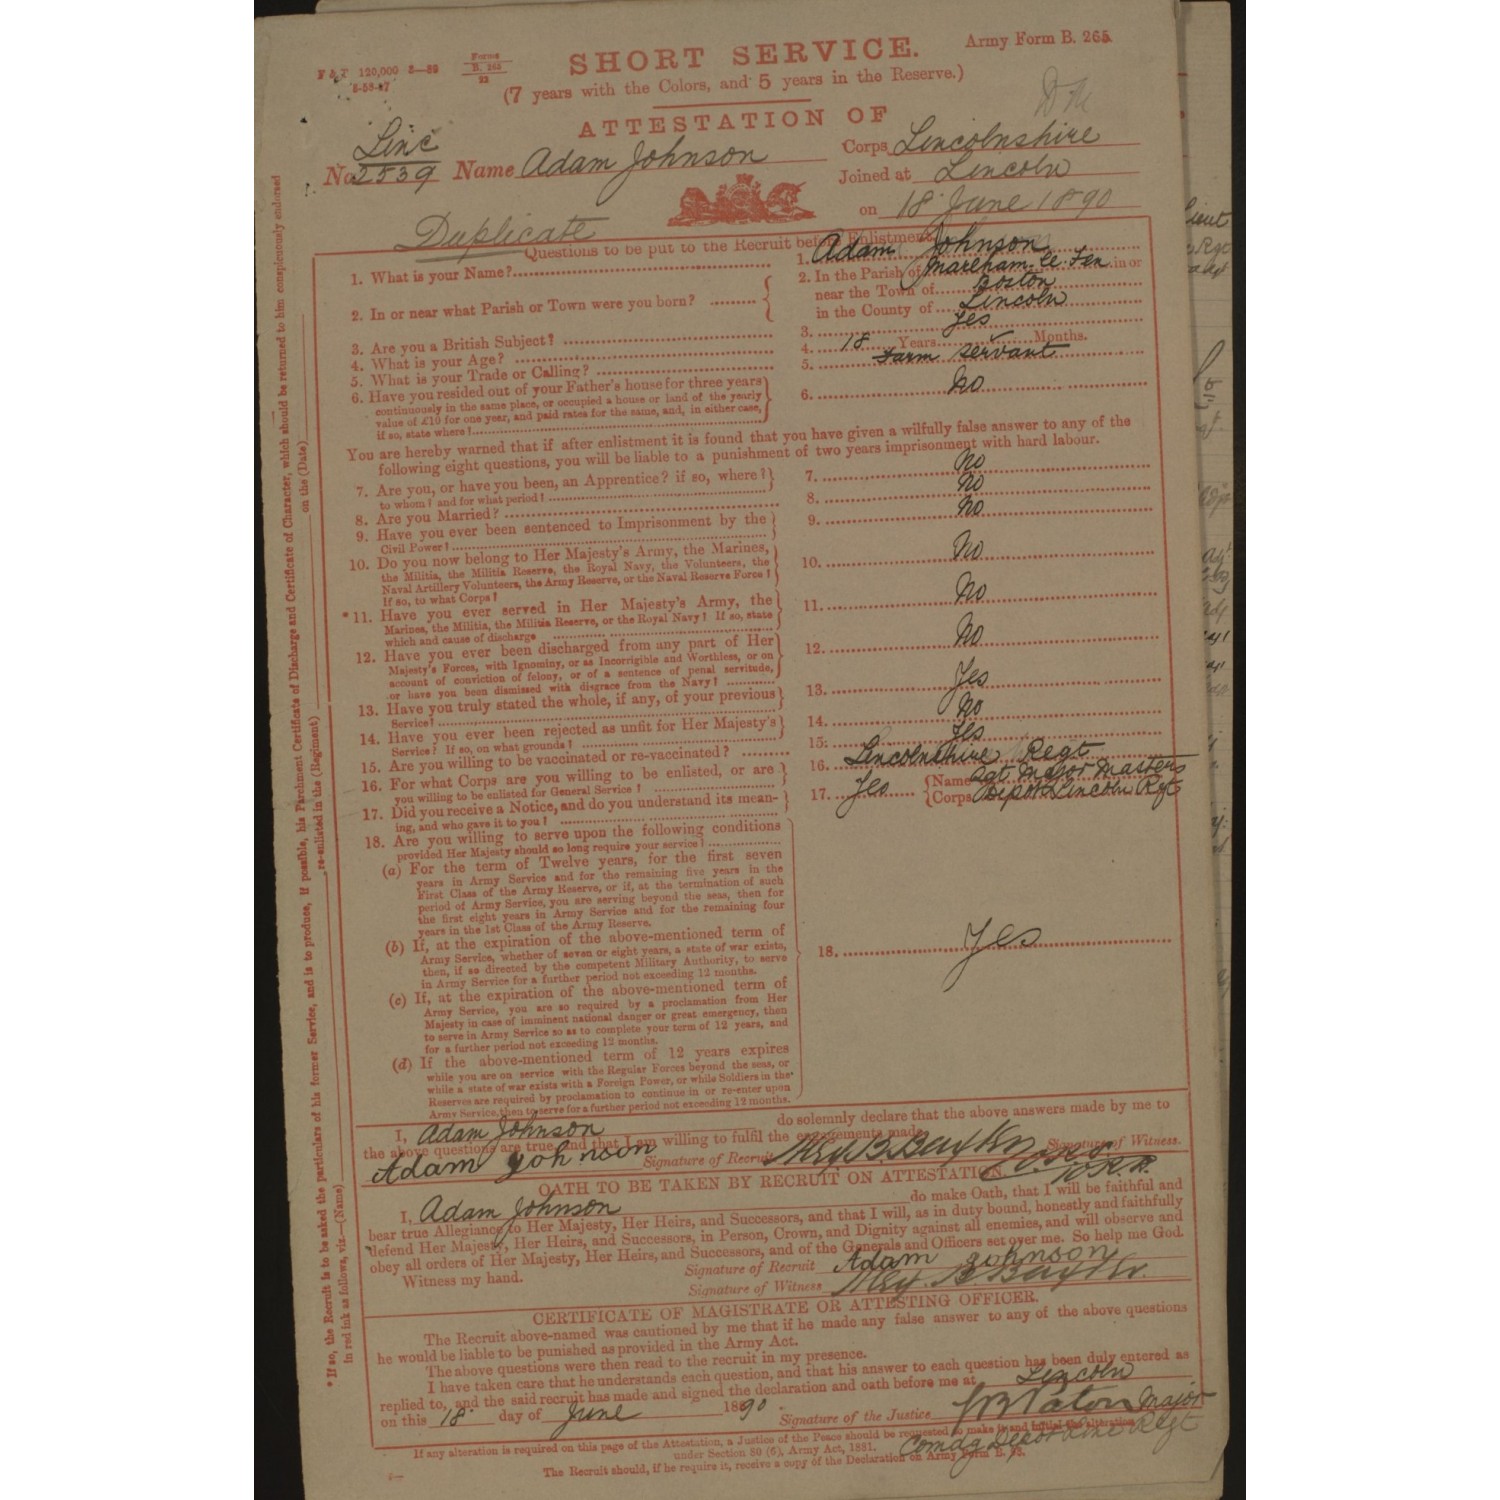 F & T 120,000 5—89
Forms
B. 265
22
SHORT SERVICE.
Army Form B. 265.
(7 years with the Colors, and 5 years in the Reserve.)
ATTESTATION OF
Linc
No. 2539 Name Adam Johnson
Corps Lincolnshire
Joined at Lincoln
on 18 June 1890
Duplicate
Questions to be put to the Recruit before Enlistment.
1. What is your Name? 1. Adam Johnson
2. In or near what Parish or Town were you born? 2. In the Parish of Mareham-le-Fen in or
near the Town of Boston
in the County of Lincoln
3. Are you a British Subject? 3. Yes
4. What is your Age? 4. 18 Years Months.
5. What is your Trade or Calling? 5. Farm Servant
6. Have you resided out of your Father's house for three years
continuously in the same place, or occupied a house or land of the yearly
value of £10 for one year, and paid rates for the same, and, in either case,
if so, state where? 6. No
You are hereby warned that if after enlistment it is found that you have given a wilfully false answer to any of the
following eight questions, you will be liable to a punishment of two years imprisonment with hard labour.
7. Are you, or have you been, an Apprentice? if so, where?
to whom? and for what period? 7. No
8. Are you Married? 8. No
9. Have you ever been sentenced to Imprisonment by the
Civil Power? 9. No
10. Do you now belong to Her Majesty's Army, the Marines,
the Militia, the Militia Reserve, the Royal Navy, the Volunteers, the
Naval Artillery Volunteers, the Army Reserve, or the Naval Reserve Force?
If so, to what Corps? 10. No
*11. Have you ever served in Her Majesty's Army, the
Marines, the Militia, the Militia Reserve, or the Royal Navy? If so, state
which and cause of discharge 11. No
12. Have you ever been discharged from any part of Her
Majesty's Forces, with Ignominy, or as Incorrigible and Worthless, or on
account of conviction of felony, or of a sentence of penal servitude,
or have you been dismissed with disgrace from the Navy? 12. No
13. Have you truly stated the whole, if any, of your previous
Service? 13. Yes
14. Have you ever been rejected as unfit for Her Majesty's
Service? If so, on what grounds? 14. No
15. Are you willing to be vaccinated or re-vaccinated? 15. Yes
16. For what Corps are you willing to be enlisted, or are
you willing to be enlisted for General Service? 16. Lincolnshire Regt
17. Did you receive a Notice, and do you understand its mean-
ing, and who gave it to you? 17. Yes Name Sgt. Major Masters
Corps Depot Lincoln Rgt
18. Are you willing to serve upon the following conditions
provided Her Majesty should so long require your service?
(a) For the term of Twelve years, for the first seven
years in Army Service and for the remaining five years in the
First Class of the Army Reserve, or if, at the termination of such
period of Army Service, you are serving beyond the seas, then for
the first eight years in Army Service and for the remaining four
years in the 1st Class of the Army Reserve.
(b) If, at the expiration of the above-mentioned term of
Army Service, whether of seven or eight years, a state of war exists,
then, if so directed by the competent Military Authority, to serve
in Army Service for a further period not exceeding 12 months.
18. Yes
(c) If, at the expiration of the above-mentioned term of
Army Service, you are so required by a proclamation from Her
Majesty in case of imminent national danger or great emergency, then
to serve in Army Service so as to complete your term of 12 years, and
for a further period not exceeding 12 months.
(d) If the above-mentioned term of 12 years expires
while you are on service with the Regular Forces beyond the seas, or
while a state of war exists with a Foreign Power, or while Soldiers in the
Reserves are required by proclamation to continue in or re-enter upon
Army Service, then to serve for a further period not exceeding 12 months.
I, Adam Johnson do solemnly declare that the above answers made by me to
the above questions are true, and that I am willing to fulfil the engagements made.
Adam Johnson Signature of Recruit. Signature of Witness.
OATH TO BE TAKEN BY RECRUIT ON ATTESTATION.
I, Adam Johnson do make Oath, that I will be faithful and
bear true Allegiance to Her Majesty, Her Heirs, and Successors, and that I will, as in duty bound, honestly and faithfully
defend Her Majesty, Her Heirs, and Successors, in Person, Crown, and Dignity against all enemies, and will observe and
obey all orders of Her Majesty, Her Heirs, and Successors, and of the Generals and Officers set over me. So help me God.
Witness my hand. Signature of Recruit Adam Johnson
Signature of Witness
CERTIFICATE OF MAGISTRATE OR ATTESTING OFFICER.
The Recruit above-named was cautioned by me that if he made any false answer to any of the above questions
he would be liable to be punished as provided in the Army Act.
The above questions were then read to the recruit in my presence.
I have taken care that he understands each question, and that his answer to each question has been duly entered as
replied to, and the said recruit has made and signed the declaration and oath before me at Lincoln
on this 18 day of June 1890
Signature of the Justice Paton Major
Comdg Depot Linc Regt
If any alteration is required on this page of the Attestation, a Justice of the Peace should be requested to make it and initial the alteration
under Section 80 (6), Army Act, 1881.
The Recruit should, if he require it, receive a copy of the Declaration on Army Form B. 98.
* If so, the Recruit is to be asked the particulars of his former Service, and is to produce, if possible, his Parchment Certificate of Discharge and Certificate of Character, which should be returned to him conspicuously endorsed
in red ink as follows, viz.—(Name) re-enlisted in the (Regiment) on the (Date)